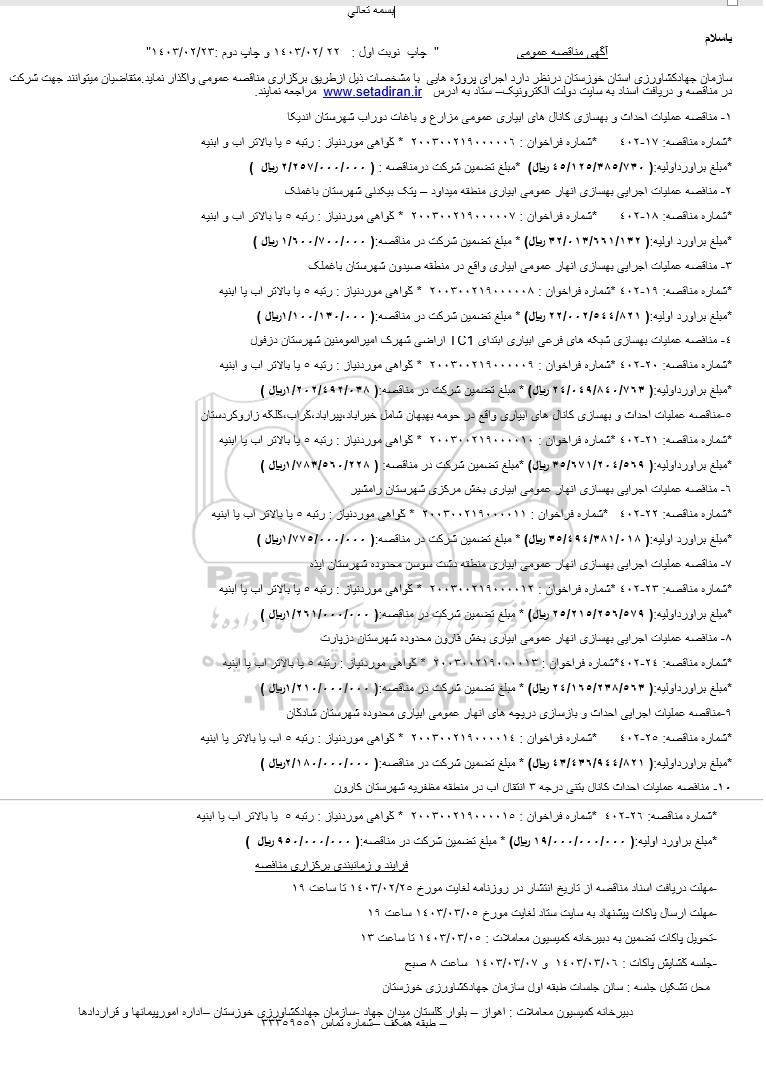 بسمه تعالي
باسلام
آگهی مناقصه عمومی " چاپ نوبت اول : ۲۲ /۱٤۰۳/۰۲ و چاپ دوم :۱٤۰۳/۰۲/۲۳"
سازمان جهادکشاورزی استان خوزستان درنظر دارد اجرای پروژه هایی با مشخصات ذیل ازطریق برگزاری مناقصه عمومی واگذار نماید.متقاضیان میتوانند جهت شرکت
در مناقصه و دریافت اسناد به سایت دولت الکترونیک– ستاد به ادرس www.setadiran.ir مراجعه نمایند.
۱- مناقصه عملیات احداث و بهسازی کانال های ابیاری عمومی مزارع و باغات دوراب شهرستان اندیکا
*شماره مناقصه: ۱۷-٤۰۲ *شماره فراخوان : ۲۰۰۳۰۰۲۱۹۰۰۰۰۰۶ * گواهی موردنیاز : رتبه ٥ یا بالاتر اب و ابنیه
*مبلغ براورداولیه:( ٤٥/۱۲٥/۳۸٥/۷۳۰ ریال) *مبلغ تضمین شرکت درمناقصه : ( ۲/۲٥۷/۰۰۰/۰۰۰ ریال )
۲- مناقصه عملیات اجرایی بهسازی انهار عمومی ابیاری منطقه میداود – پتک بیکدلی شهرستان باغملک
*شماره مناقصه: ۱۸-٤۰۲ *شماره فراخوان : ۲۰۰۳۰۰۲۱۹۰۰۰۰۰۷ * گواهی موردنیاز : رتبه ٥ یا بالاتر اب و ابنیه
*مبلغ براورد اولیه:( ۳۲/۰۱۳/۶۶۱/۱۳۲ ریال) * مبلغ تضمین شرکت در مناقصه:( ۱/۶۰۰/۷۰۰/۰۰۰ ریال )
۳- مناقصه عملیات اجرایی بهسازی انهار عمومی ابیاری واقع در منطقه صیدون شهرستان باغملک
*شماره مناقصه: ۱۹-٤۰۲ *شماره فراخوان : ۲۰۰۳۰۰۲۱۹۰۰۰۰۰۸ * گواهی موردنیاز : رتبه ٥ یا بالاتر اب یا ابنیه
*مبلغ براورد اولیه:( ۲۲/۰۰۲/٥٤٤/۸۲۱ ریال) * مبلغ تضمین شرکت در مناقصه:( ۱/۱۰۰/۱۳۰/۰۰۰ریال )
٤- مناقصه عملیات بهسازی شبکه های فرعی ابیاری ابتدای IC1 اراضی شهرک امیرالمومنین شهرستان دزفول
*شماره مناقصه: ۲۰-٤۰۲ *شماره فراخوان : ۲۰۰۳۰۰۲۱۹۰۰۰۰۰۹ * گواهی موردنیاز : رتبه ٥ یا بالاتر اب و ابنیه
*مبلغ براورداولیه:( ۲٤/۰٤۹/۸٤۰/۷۶۳ ریال) * مبلغ تضمین شرکت در مناقصه:( ۱/۲۰۲/٤۹۲/۰۳۸ریال )
٥-مناقصه عملیات احداث و بهسازی کانال های ابیاری واقع در حومه بهبهان شامل خیراباد،پیراباد،گراب،کلگه زاروکردستان
*شماره مناقصه: ۲۱-٤۰۲ *شماره فراخوان : ۲۰۰۳۰۰۲۱۹۰۰۰۰۱۰ * گواهی موردنیاز : رتبه ٥ یا بالاتر اب یا ابنیه
*مبلغ براورداولیه:( ۳٥/۶۷۱/۲۰٤/٥۶۹ ریال) *مبلغ تضمین شرکت در مناقصه: ( ۱/۷۸۳/٥۶۰/۲۲۸ریال )
۶- مناقصه عملیات اجرایی بهسازی انهار عمومی ابیاری بخش مرکزی شهرستان رامشیر
*شماره مناقصه: ۲۲-٤۰۲ *شماره فراخوان : ۲۰۰۳۰۰۲۱۹۰۰۰۰۱۱ * گواهی موردنیاز : رتبه ٥ یا بالاتر اب یا ابنیه
*مبلغ براورد اولیه:( ۳٥/٤۹٤/۳۸۱/۰۱۸ ریال) * مبلغ تضمین شرکت در مناقصه:( ۱/۷۷٥/۰۰۰/۰۰۰ریال )
۷- مناقصه عملیات اجرایی بهسازی انهار عمومی ابیاری منطقه دشت سوسن محدوده شهرستان ایذه
*شماره مناقصه: ۲۳-٤۰۲ *شماره فراخوان : ۲۰۰۳۰۰۲۱۹۰۰۰۰۱۲ * گواهی موردنیاز : رتبه ٥ یا بالاتر اب یا ابنیه
*مبلغ براورداولیه:( ۲٥/۲۱٥/۲٥۶/٥۷۹ ریال) * مبلغ تضمین شرکت در مناقصه:( ۱/۲۶۱/۰۰۰/۰۰۰ریال )
۸- مناقصه عملیات اجرایی بهسازی انهار عمومی ابیاری بخش قارون محدوده شهرستان دزپارت
*شماره مناقصه: ۲٤-٤۰۲ *شماره فراخوان : ۲۰۰۳۰۰۲۱۹۰۰۰۰۱۳ * گواهی موردنیاز : رتبه ٥ یا بالاتر اب یا ابنیه
*مبلغ براورداولیه:( ۲٤/۱۶٥/۲۳۸/٥۶۳ ریال) * مبلغ تضمین شرکت در مناقصه:( ۱/۲۱۰/۰۰۰/۰۰۰ریال )
۹-مناقصه عملیات اجرایی احداث و بازسازی دریچه های انهار عمومی ابیاری محدوده شهرستان شادگان
*شماره مناقصه: ۲٥-٤۰۲ *شماره فراخوان : ۲۰۰۳۰۰۲۱۹۰۰۰۰۱٤ * گواهی موردنیاز : رتبه ٥ اب یا بالاتر یا ابنیه
*مبلغ براورداولیه:( ٤۳/٤۳۶/۹٤٤/۸۲۱ ریال) * مبلغ تضمین شرکت در مناقصه:( ۲/۱۸۰/۰۰۰/۰۰۰ریال )
۱۰- مناقصه عملیات احداث کانال بتنی درجه ۳ انتقال اب در منطقه مظفریه شهرستان کارون
*شماره مناقصه: ۲۶-٤۰۲ *شماره فراخوان : ۲۰۰۳۰۰۲۱۹۰۰۰۰۱٥ * گواهی موردنیاز : رتبه ٥ یا بالاتر اب یا ابنیه
*مبلغ براورد اولیه:( ۱۹/۰۰۰/۰۰۰/۰۰۰ ریال) * مبلغ تضمین شرکت در مناقصه:( ۹٥۰/۰۰۰/۰۰۰ ریال )
فرایند و زمانبندی برگزاری مناقصه
-مهلت دریافت اسناد مناقصه از تاریخ انتشار در روزنامه لغایت مورخ ۱٤۰۳/۰۲/۲٥ تا ساعت ۱۹
-مهلت ارسال پاکات پیشنهاد به سایت ستاد لغایت مورخ ۱٤۰۳/۰۳/۰٥ ساعت ۱۹
-تحویل پاکات تضمین به دبیرخانه کمیسیون معاملات : ۱٤۰۳/۰۳/۰٥ تا ساعت ۱۳
-جلسه گشایش پاکات : ۱٤۰۳/۰۳/۰۶ و ۱٤۰۳/۰۳/۰۷ ساعت ۸ صبح
محل تشکیل جلسه : سالن جلسات طبقه اول سازمان جهادکشاورزی خوزستان
دبیرخانه کمیسیون معاملات : اهواز – بلوار گلستان میدان جهاد -سازمان جهادکشاورزی خوزستان –اداره امورپیمانها و قراردادها
– طبقه همکف –شماره تماس ۳۳۳٥۹٥٥۱
ParsNamadData
پایگاه اطلاع رسانی مناقصه و مزایده
۰۲۱-۸۸۳٤۹۶۷۰-٥